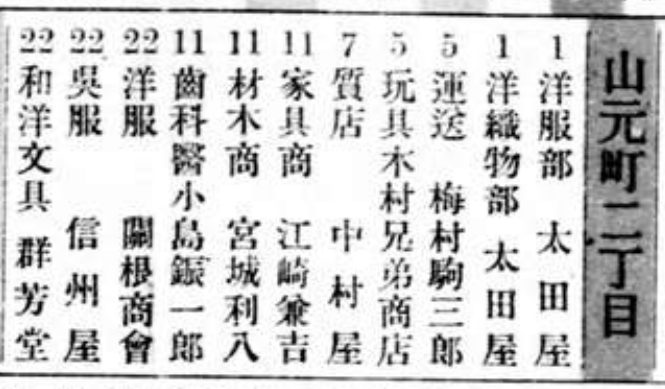 山元町二丁目
1 洋服部 太田屋
1 洋織物部 太田屋
5 運送 梅村駒三郎
5 玩具木村兄弟商店
7 質店 中村屋
11 家具商 江崎兼吉
11 材木商 宮城利八
11 齒科醫小島鋠一郎
22 洋服 關根商會
22 吳服 信州屋
22 和洋文具 群芳堂